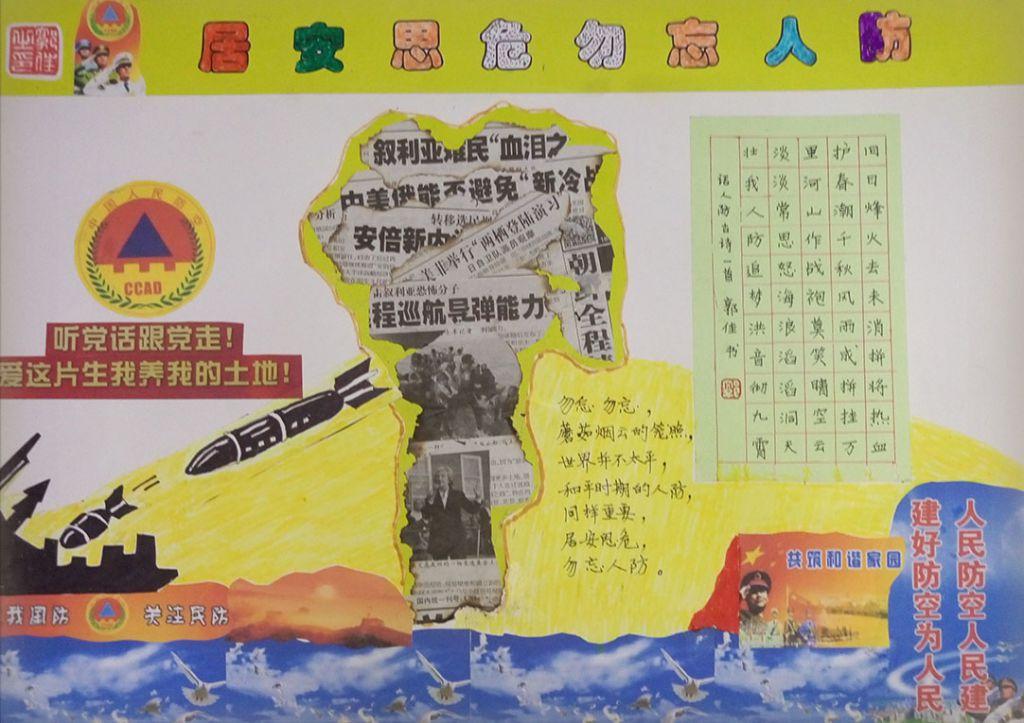 居安思危勿忘人防
中国人民防空
CCAD
听党话跟党走！
爱这片生我养我的土地！
叙利亚难民“血泪之
中美俄能不避免“新冷战
分析
转移选民
安倍新内
美菲举行“两栖登陆演习
日自卫队
击叙利亚恐怖分子
程巡航导弹能力
朝
全程
国内统一刊号
勿忘勿忘，
蘑菇烟云的笼照，
世界并不太平，
和平时期的人防，
同样重要，
居安思危，
勿忘人防。
日烽火去未消拼将热血
护春潮千秋风雨成拼挂万
里河山作战袍莫笑啸空云
淡淡常思怒海浪滔滔洞天
壮我人防追梦洪音彻九霄
话人防古诗一首 郭佳书
共筑和谐家园
人民防空人民建
建好防空为人民
我国防
关注民防